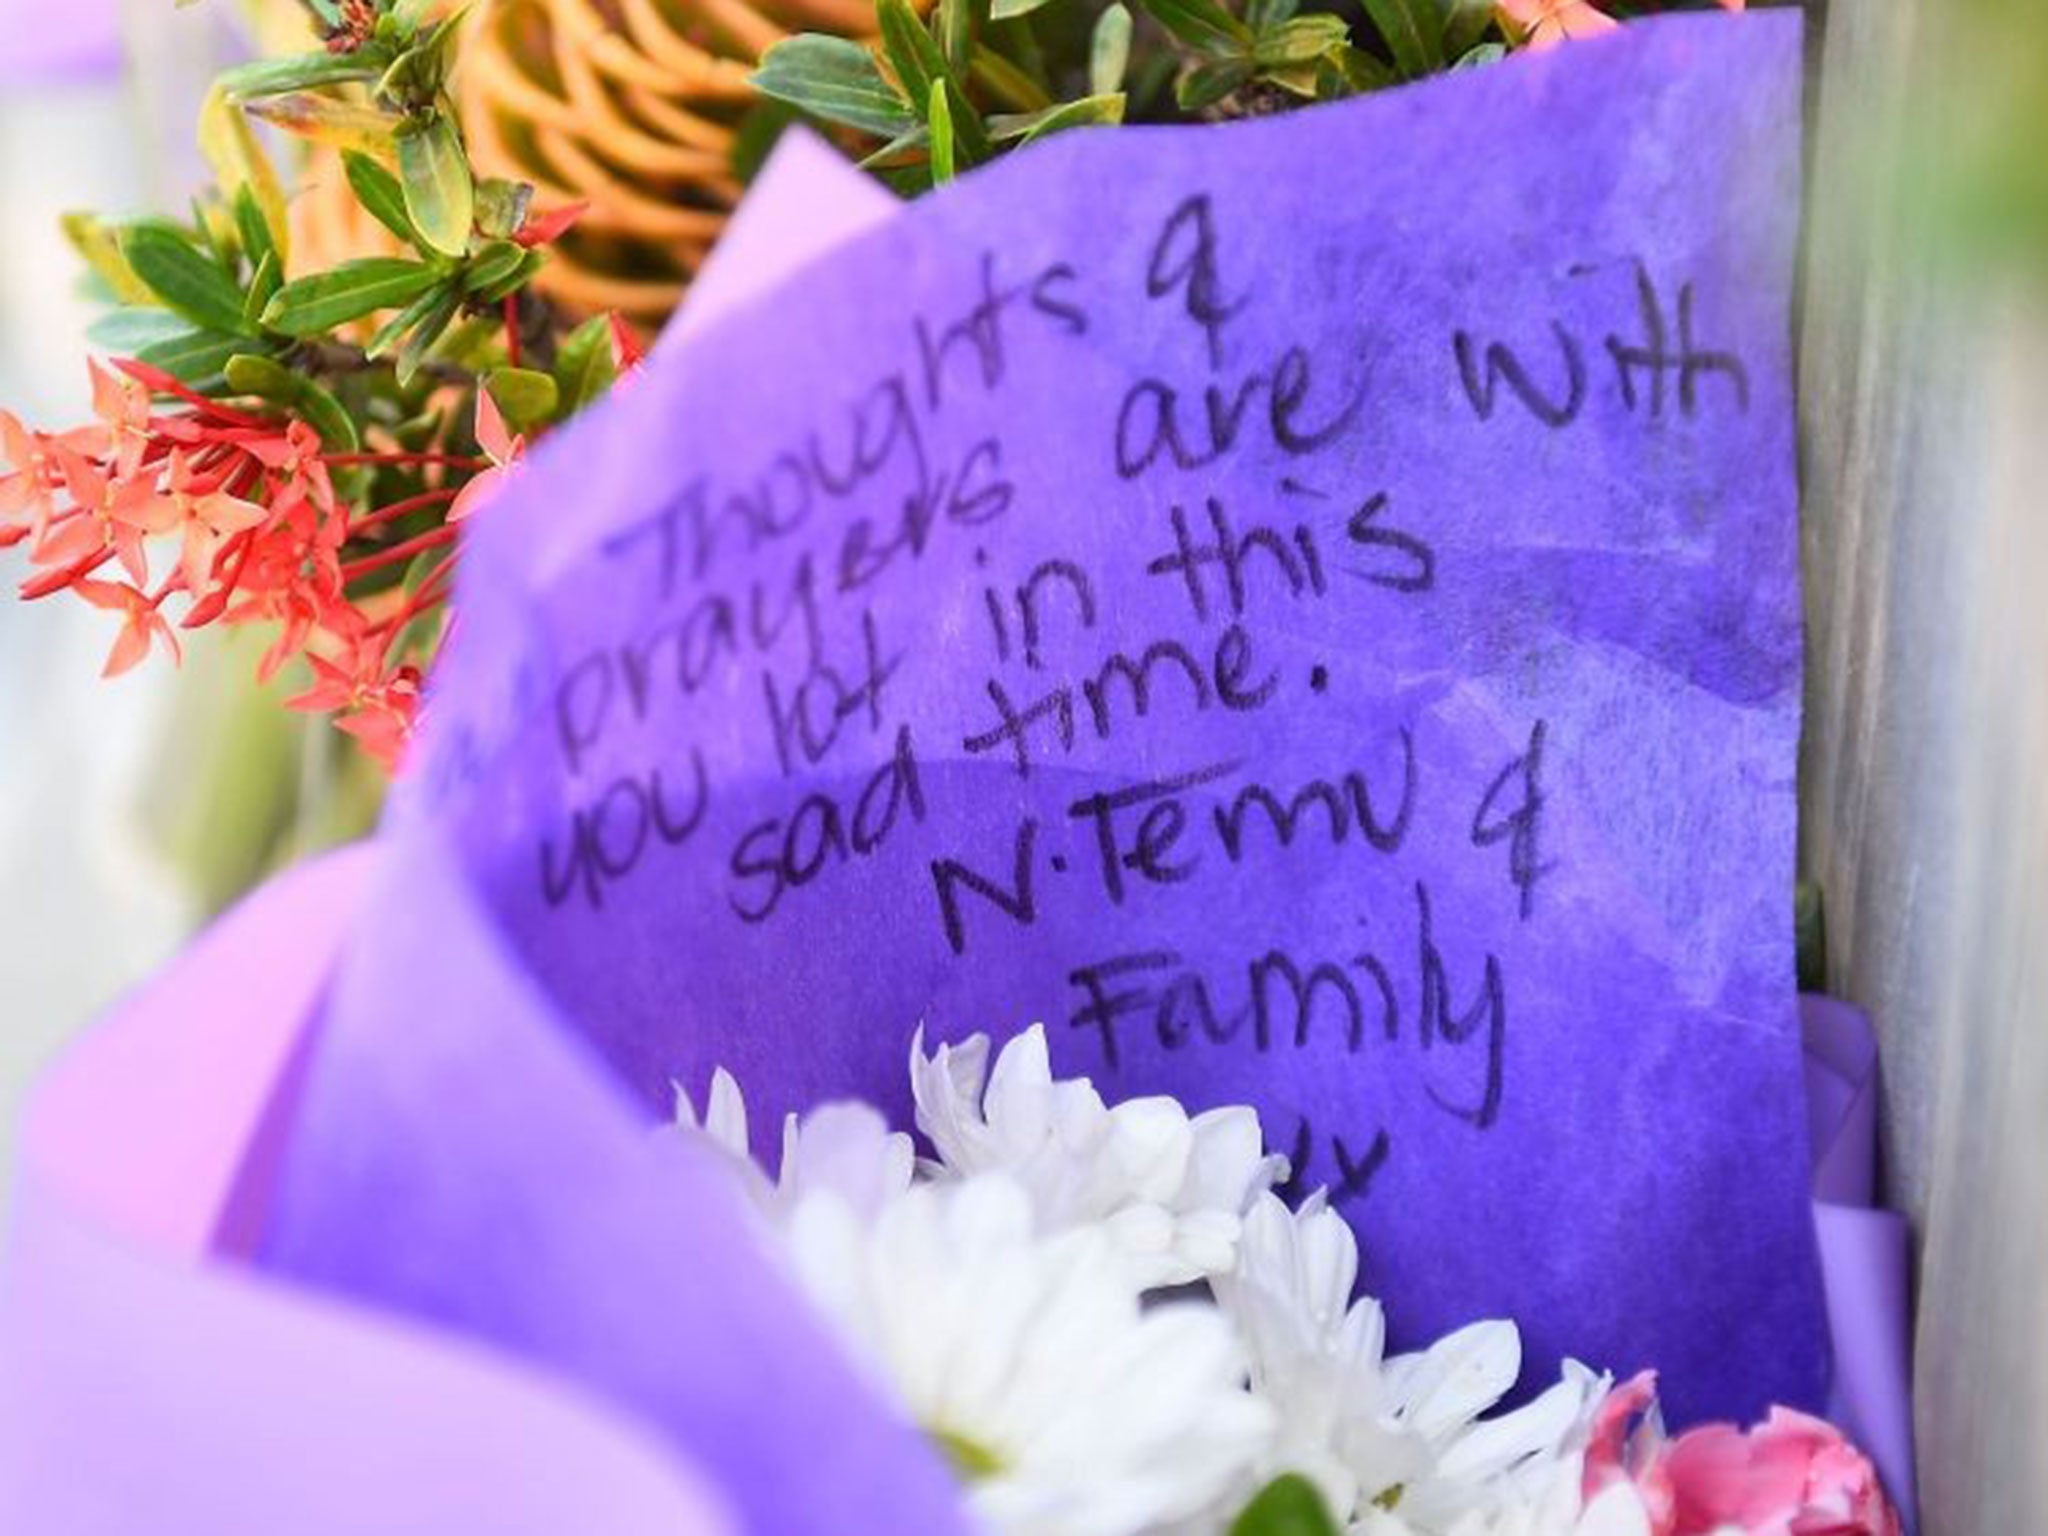 Thoughts &
prayers are with
you lot in this
sad time.
N. Temu &
Family
xx